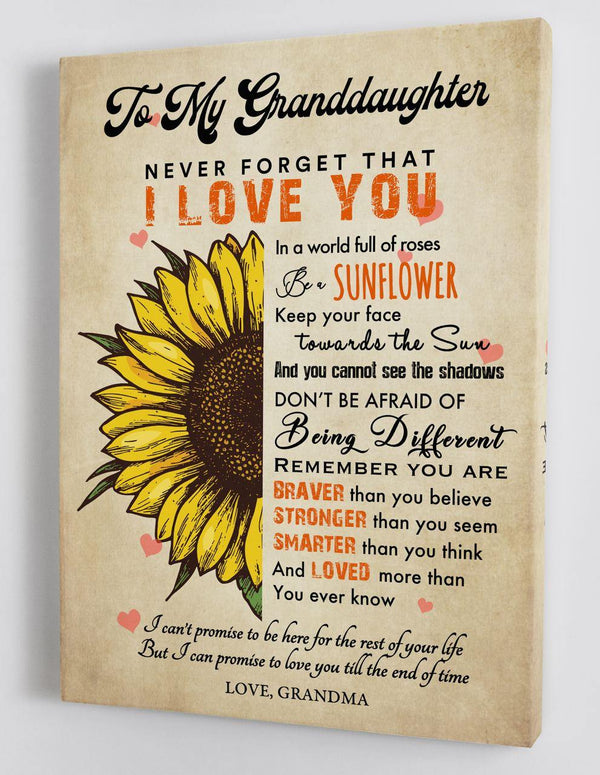 To My Granddaughter
NEVER FORGET THAT
I LOVE YOU
In a world full of roses
Be a SUNFLOWER
Keep your face
towards the Sun
And you cannot see the shadows
DON'T BE AFRAID OF
Being Different
REMEMBER YOU ARE
BRAVER than you believe
STRONGER than you seem
SMARTER than you think
And LOVED more than
You ever know
I can't promise to be here for the rest of your life
But I can promise to love you till the end of time
LOVE, GRANDMA